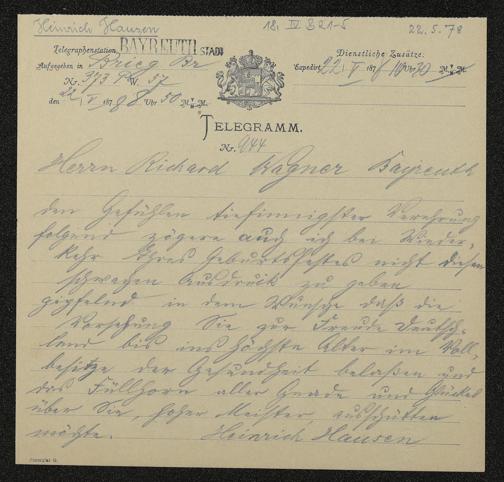 Heinrich Hausen 18, IV B 21-5 22.5.78
Telegraphenstation BAYREUTH STADT
Dienstliche Zusätze:
Aufgegeben in Brieg Br
Expedirt 22, V 1878 Uhr M.
Nr. 373 37
den 22, V 1878 8 Uhr 50 M. M.
TELEGRAMM.
Nr. 944
Herrn Richard Wagner Bayreuth
den Gefühlen tiefinnigster Verehrung
folgend zögere auch ich bei Wieder-
kehr Ihres Geburtsfestes nicht diesen
schwachen Ausdruck zu geben
gipfelnd in dem Wunsche daß die
Vorsehung Sie zur Freude Deutsch-
land bis ins höchste Alter im Voll-
besitze der Gesundheit belaßen und
das Füllhorn aller Gnade und Glückes
über Sie, hoher Meister, ausschütten
möchte. Heinrich Hausen